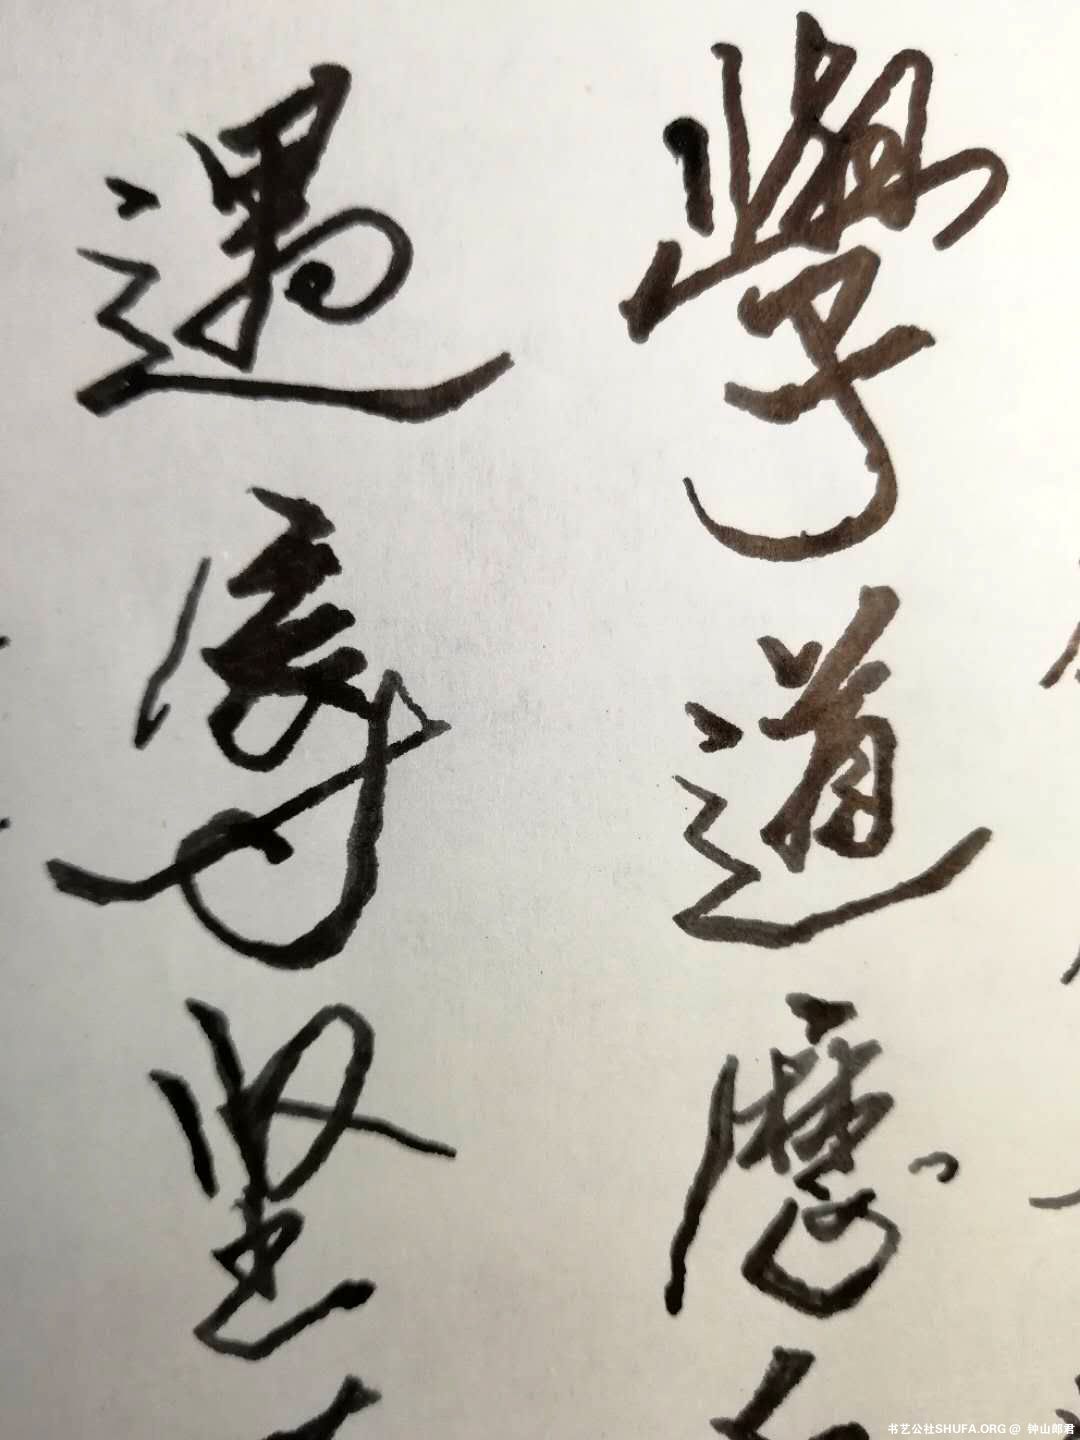 學道歷
遇辱坚
书艺公社SHUFA.ORG @ 钟山郎君